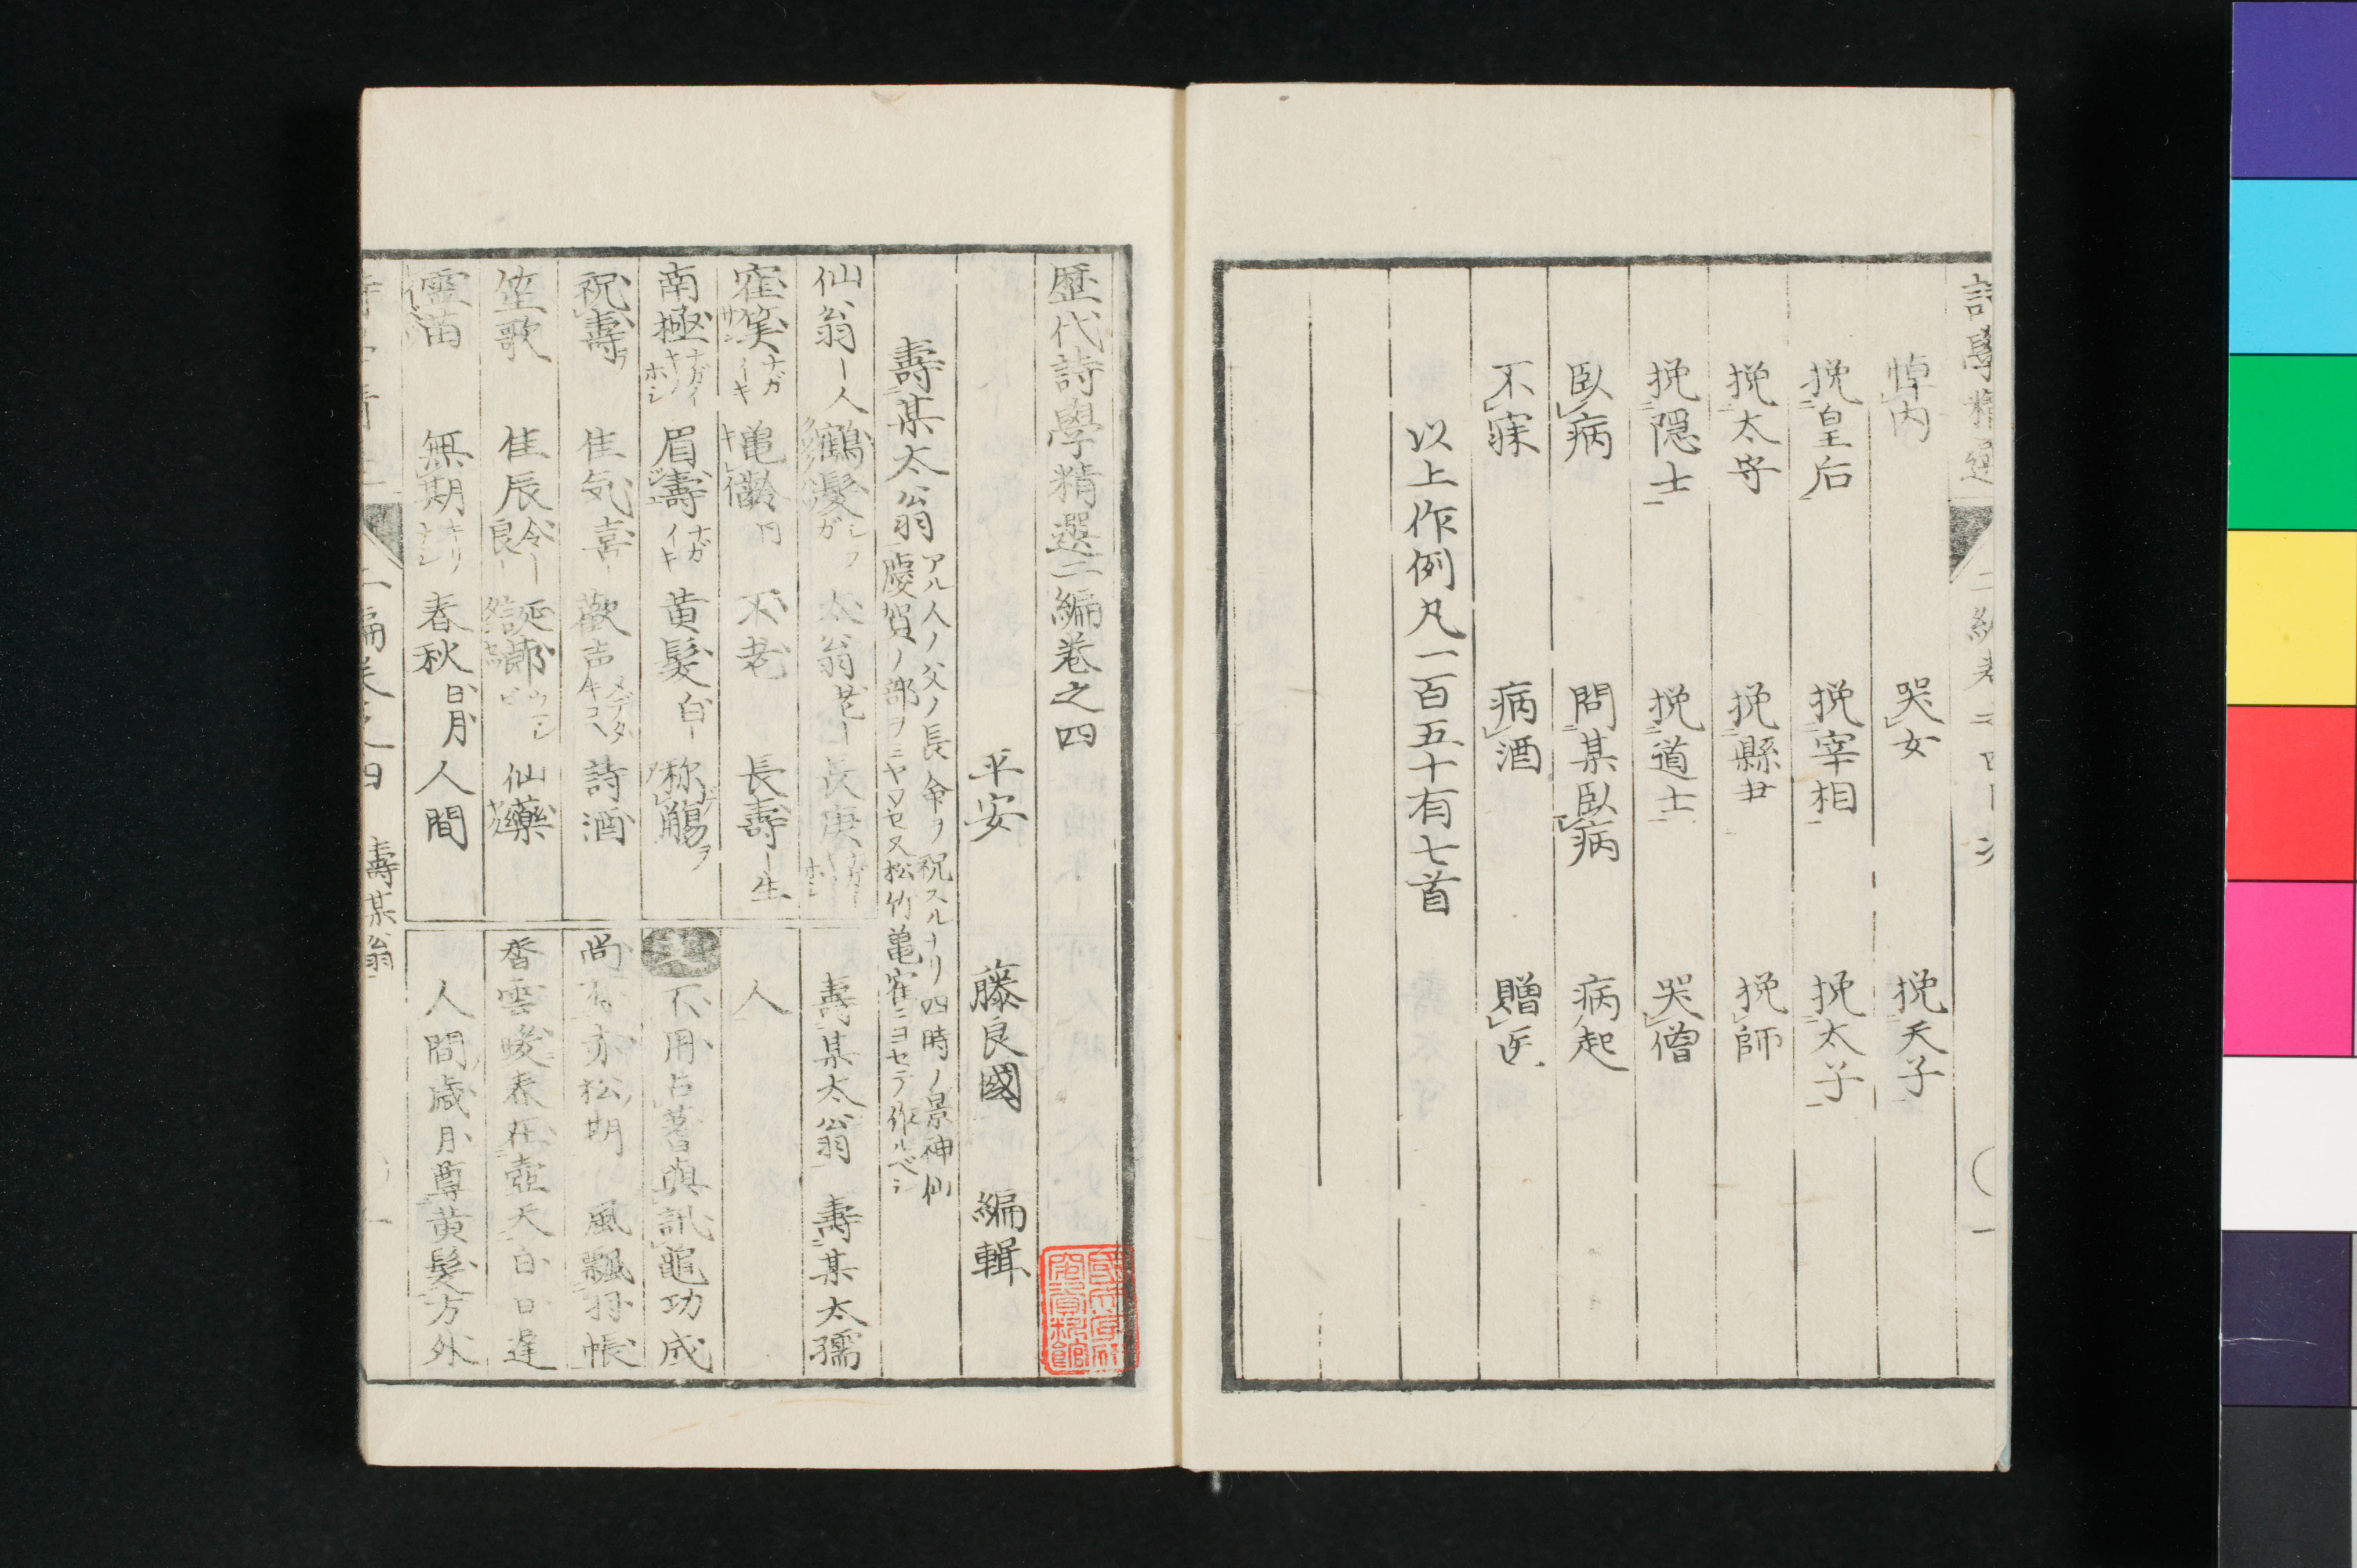 悼内　哭女　挽天子
挽皇后　挽宰相　挽太子
挽太守　挽縣尹　挽師
挽隠士　挽道士　哭僧
臥病　問某臥病　病起
不寐　病酒　贈医
以上作例凡一百五十有七首
歴代詩學精選二編巻之四
平安　藤良國　編輯
壽某太翁
アル人ノ父ノ長命ヲ祝スルナリ四時ノ景神仙
慶賀ノ部ヲミヤワセ又松竹亀雀ニヨセテ作ルベシ
仙翁｜人　鶴髮　太翁　長庚
壽某太翁　壽某太孺
寉筭ナガイキ　亀齢　不老　長壽｜生
人
南極　眉壽ナガイキ　黄髮白｜　称觴
不用占蓍與訊龜功成
祝壽　佳気喜｜　歡声　詩酒
尚　亦松期　風飄羽帳
笙歌　佳辰令｜良｜　誕節　仙藥
香雲暖春在壺天白日遅
霊苗　無期　春秋日月　人間
人間歳月尊黄髮方外
壽某翁